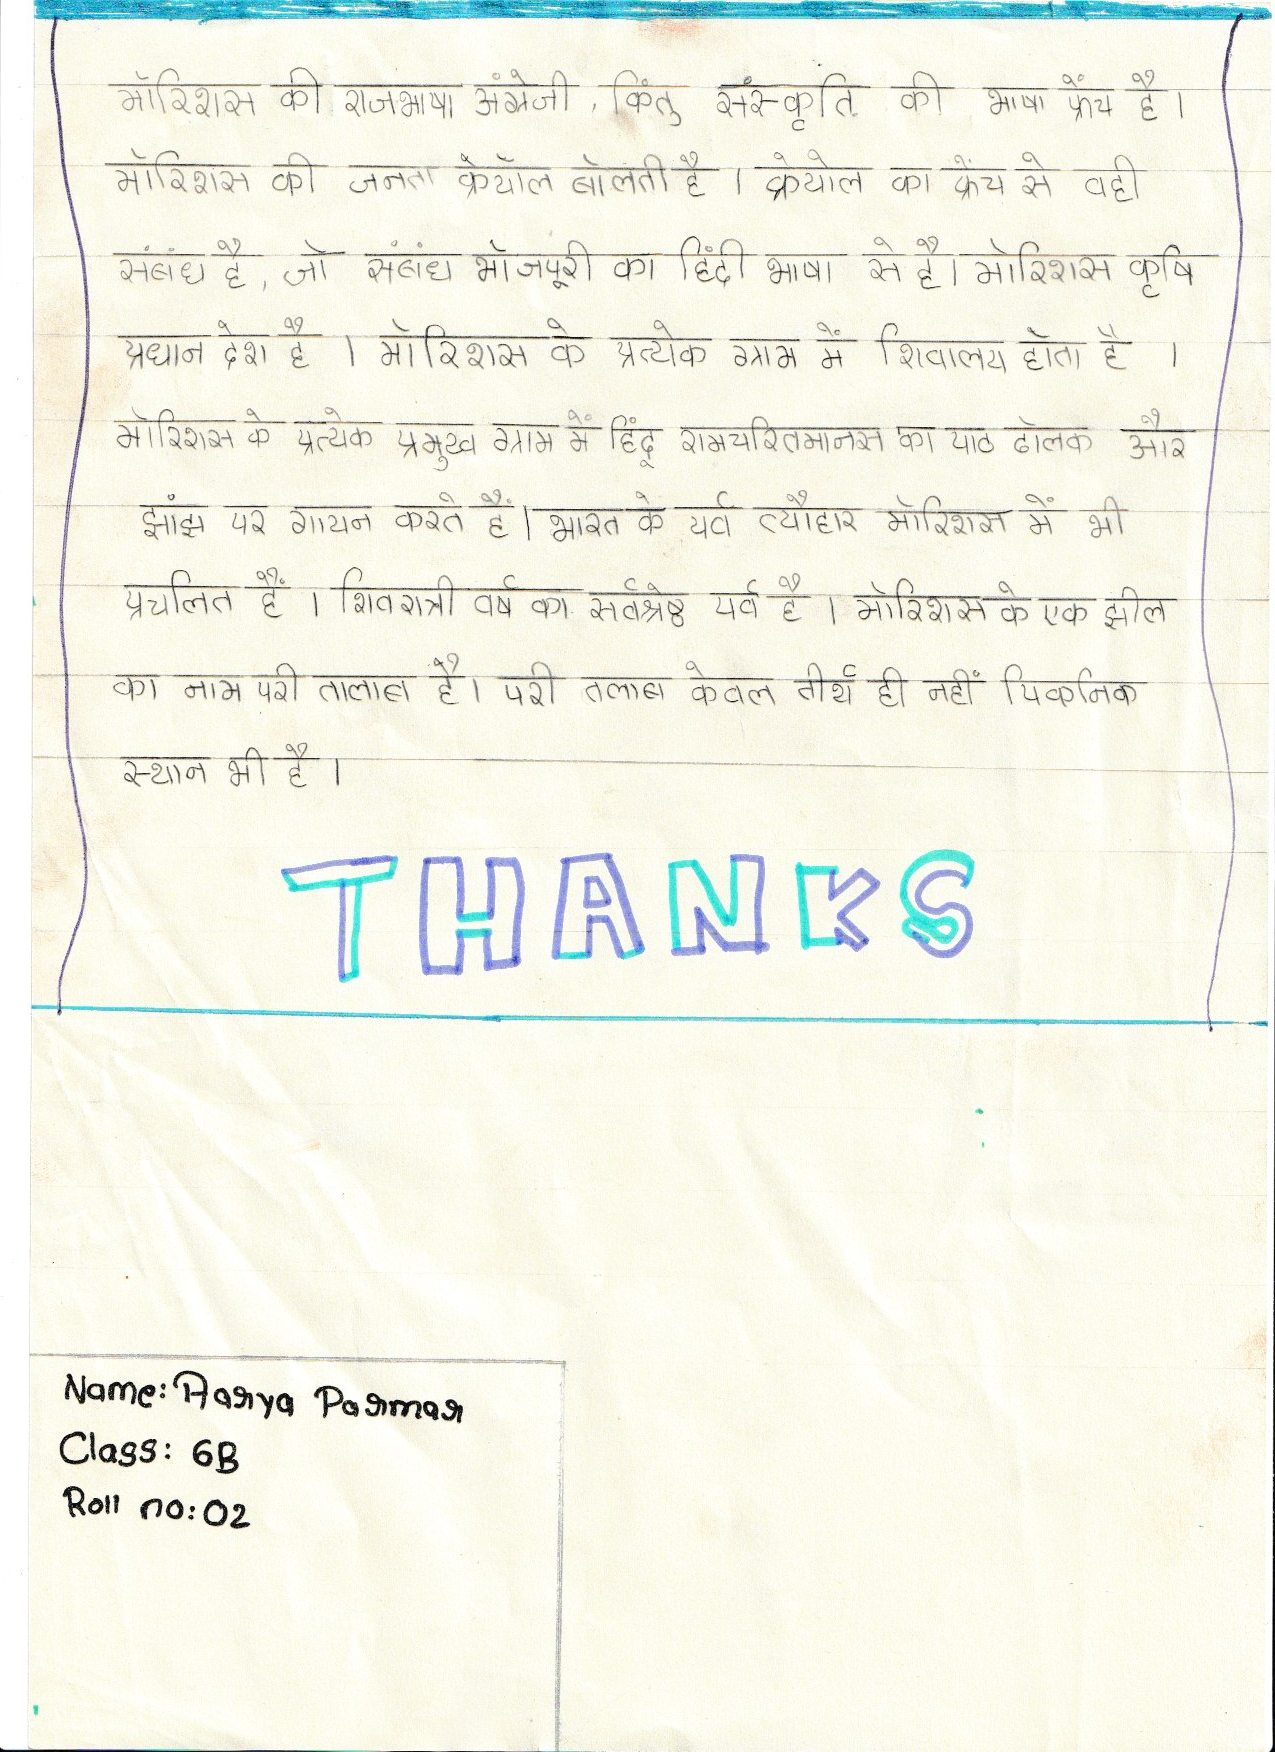 मॉरिशस की राजभाषा अंग्रेजी, किंतु संस्कृति की भाषा फ्रेंच है।
मॉरिशस की जनता क्रेयॉल बोलती है। क्रेयोल का फ्रेंच से वही
संबंध है, जो संबंध भोजपूरी का हिंदी भाषा से है। मॉरिशस कृषि
प्रधान देश है। मॉरिशस के प्रत्येक ग्राम में शिवालय होता है।
मॉरिशस के प्रत्येक प्रमुख ग्राम में हिंदू रामचरितमानस का पाठ ढोलक और
झांझ पर गायन करते हैं। भारत के पर्व त्यौहार मॉरिशस में भी
प्रचलित हैं। शिवरात्री वर्ष का सर्वश्रेष्ठ पर्व है। मॉरिशस के एक झील
का नाम परी तालाब है। परी तलाब केवल तीर्थ ही नहीं पिकनिक
स्थान भी है।
THANKS
Name: Aarya Parmar
Class: 6B
Roll no: 02